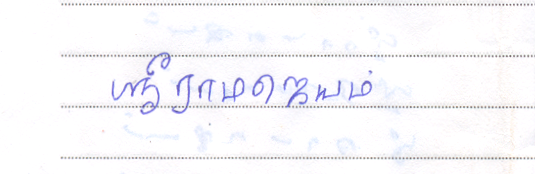 ஸ்ரீ ராமஜெயம்